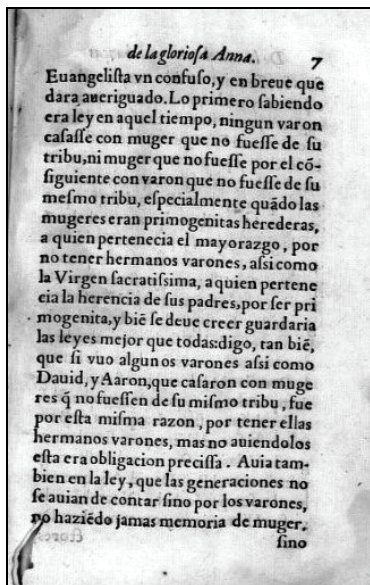 de la gloriosa Anna. 7
Euangeliſta vn confuſo, y en breue que
dara aueriguado. Lo primero ſabiendo
era ley en aquel tiempo, ningun varon
caſaſſe con muger que no fueſſe de ſu
tribu, ni muger que no fueſſe por el cõ-
ſiguiente con varon que no fueſſe de ſu
meſmo tribu, eſpecialmente quãdo las
mugeres eran primogenitas herederas,
a quien pertenecia el mayorazgo, por
no tener hermanos varones, aſsi como
la Virgen ſacratiſsima, a quien pertene
cia la herencia de ſus padres, por ſer pri
mogenita, y biẽ ſe deue creer guardaria
las leyes mejor que todas: digo, tan biẽ,
que ſi vuo algunos varones aſsi como
Dauid, y Aaron, que caſaron con muge
res q̃ no fueſſen de ſu miſmo tribu, fue
por eſta miſma razon, por tener ellas
hermanos varones, mas no auiendolos
eſta era obligacion preciſſa. Auia tam-
bien en la ley, que las generaciones no
ſe auian de contar ſino por los varones,
no haziẽdo jamas memoria de muger,
ſino